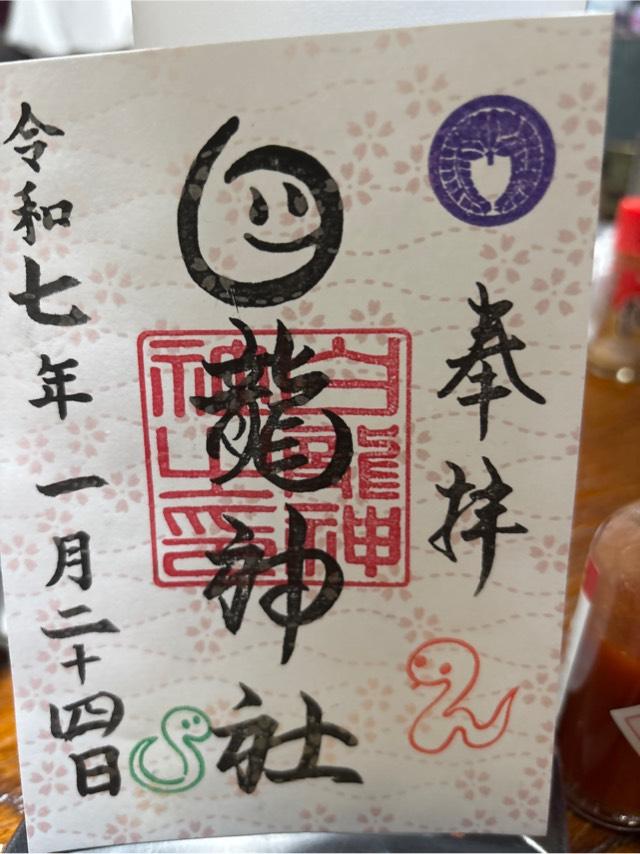 奉拝
白龍神社
白龍神
社之印
令和七年一月二十四日